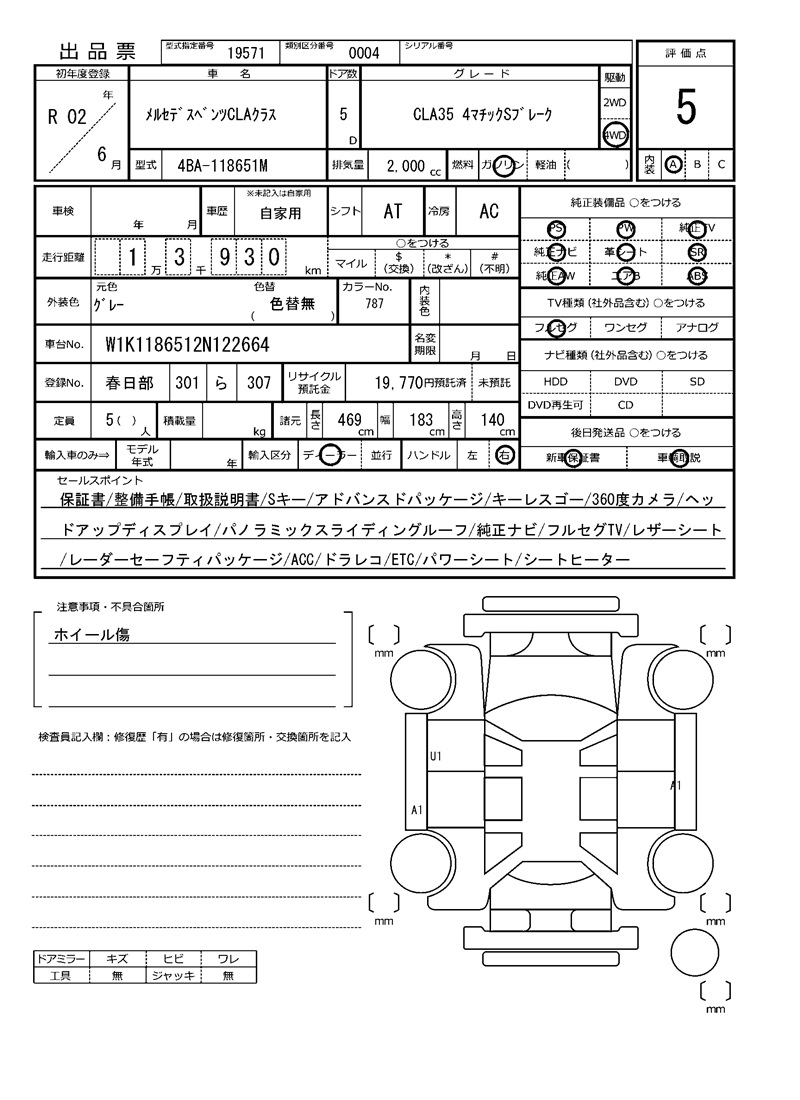 出品票 型式指定番号 19571 類別区分番号 0004 シリアル番号
評価点
5
内装 A B C
初年度登録 車名 ドア数 グレード 駆動
R 02 年 6 月
メルセデスベンツCLAクラス
5 D
CLA35 4マチックSブレーク
2WD
4WD
型式 4BA-118651M 排気量 2,000 cc 燃料 ガソリン 軽油 ( )
車検 年 月 車歴 ※未記入は自家用 自家用 シフト AT 冷房 AC
走行距離 1 万 3 千 9 3 0 km
○をつける
マイル $ (交換) * (改ざん) # (不明)
外装色 元色 グレー 色替 ( 色替無 ) カラーNo. 787 内装色
車台No. W1K1186512N122664 名変期限 月 日
登録No. 春日部 301 ら 307 リサイクル預託金 19,770円預託済 未預託
定員 5 ( ) 人 積載量 kg 諸元 長さ 469 cm 幅 183 cm 高さ 140 cm
輸入車のみ⇒ モデル年式 年 輸入区分 ディーラー 並行 ハンドル 左 右
純正装備品 ○をつける
PS PW 純正TV
純正ナビ 革シート SR
純正AW エアB ABS
TV種類 (社外品含む) ○をつける
フルセグ ワンセグ アナログ
ナビ種類 (社外品含む) ○をつける
HDD DVD SD
DVD再生可 CD
後日発送品 ○をつける
新車保証書 車輌取説
セールスポイント
保証書/整備手帳/取扱説明書/Sキー/アドバンスドパッケージ/キーレスゴー/360度カメラ/ヘッ
ドアップディスプレイ/パノラミックスライディングルーフ/純正ナビ/フルセグTV/レザーシート
/レーダーセーフティパッケージ/ACC/ドラレコ/ETC/パワーシート/シートヒーター
注意事項・不具合箇所
ホイール傷
検査員記入欄：修復歴「有」の場合は修復箇所・交換箇所を記入
mm mm
U1
A1
A1
mm mm
mm
ドアミラー キズ ヒビ ワレ
工具 無 ジャッキ 無